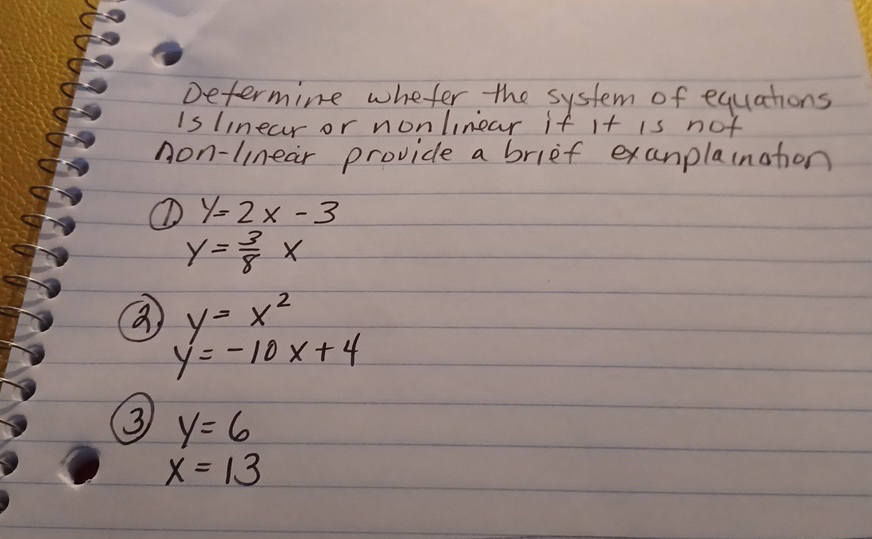 Determine whefer the system of equations
Is linear or nonlinear if it is not
non-linear provide a brief exanplaination
① y=2x-3
y=3/8 x
② y=x²
y=-10x+4
③ y=6
x=13